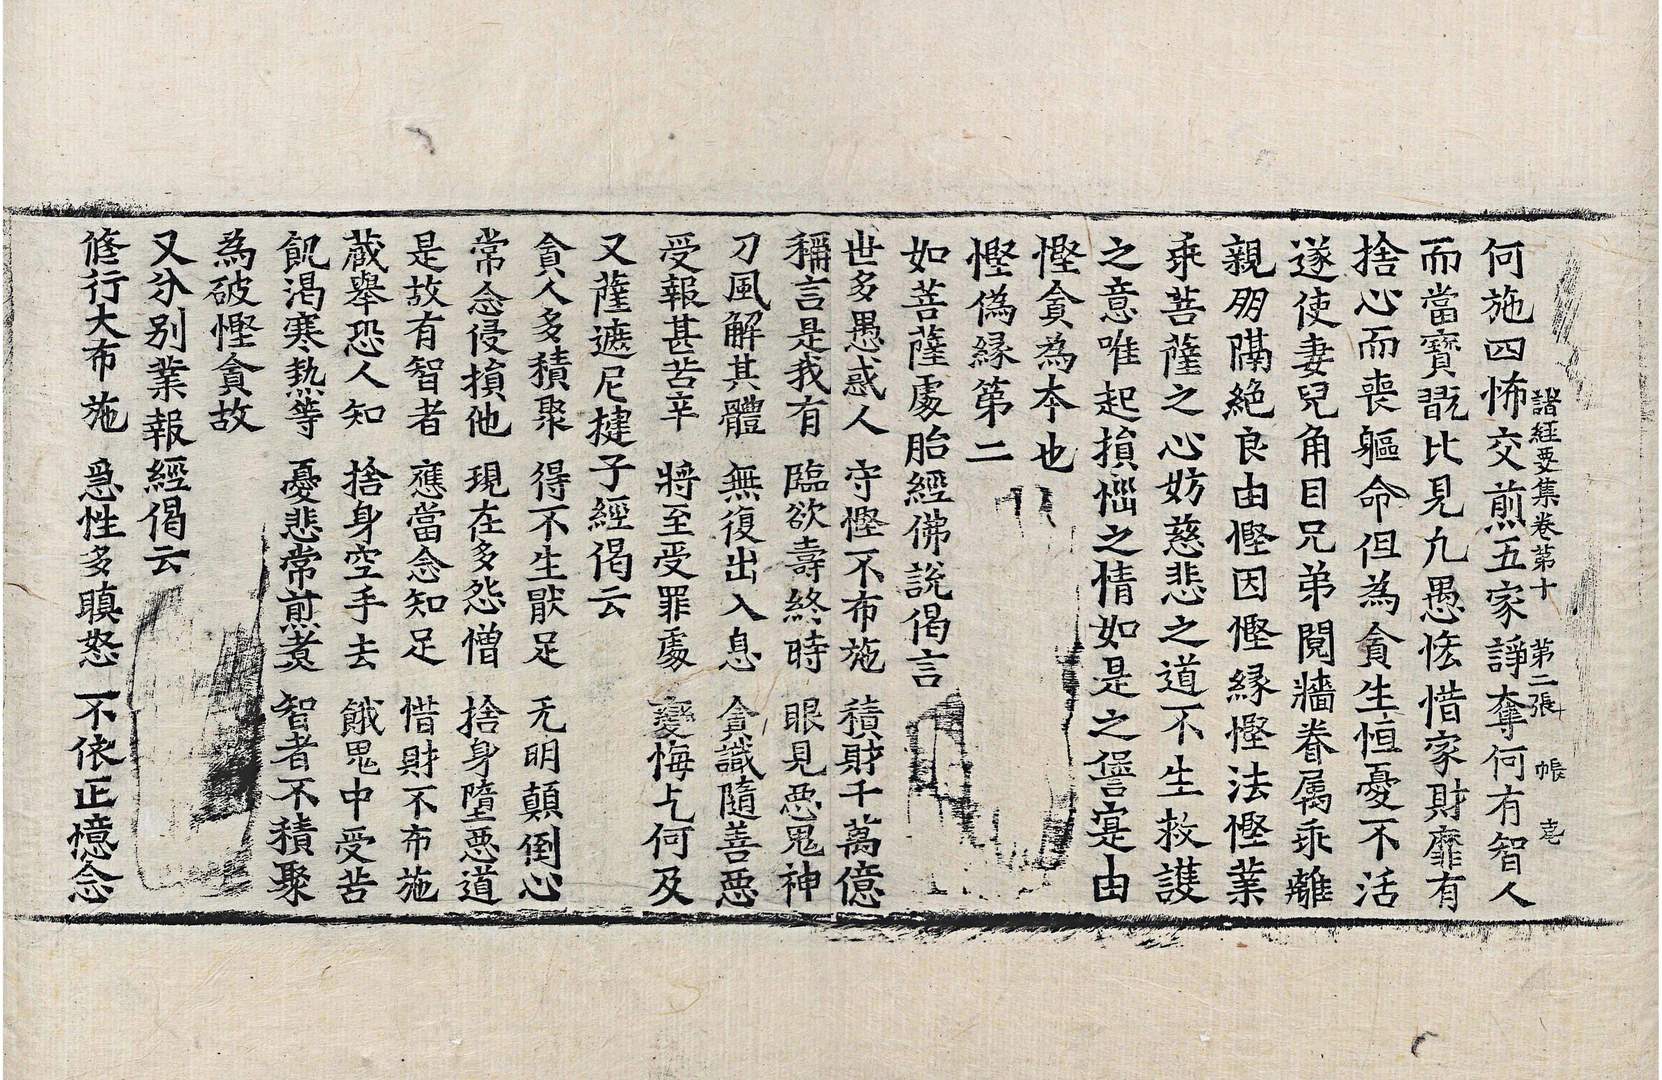 諸経要集卷第十　第二張　帳
何施四怖交煎五家諍奪何有智人
而當寶翫比見凢愚悋惜家財靡有
捨心而喪軀命但為貪生恒憂不活
遂使妻兒角目兄弟閱牆眷属乖離
親朋隔絶良由慳因慳縁慳法慳業
乖菩薩之心妨慈悲之道不生救護
之意唯起損惱之情如是之𠎝寔由
慳貪為本也
慳偽縁第二
如菩薩處胎經佛說偈言
世多愚惑人　守慳不布施　積財千萬億
稱言是我有　臨欲壽終時　眼見惡鬼神
刀風解其體　無復出入息　貪識隨善惡
受報甚苦辛　將至受罪處　變悔乆何及
又薩遮尼揵子經偈云
貪人多積聚　得不生猒足　无明顛倒心
常念侵損他　現在多怨憎　捨身墮惡道
是故有智者　應當念知足　惜財不布施
蔵舉恐人知　捨身空手去　餓鬼中受苦
飢渴寒熱等　憂悲常煎煮　智者不積聚
為破慳貪故
又分別業報經偈云
修行大布施　急性多瞋怒　不依正憶念